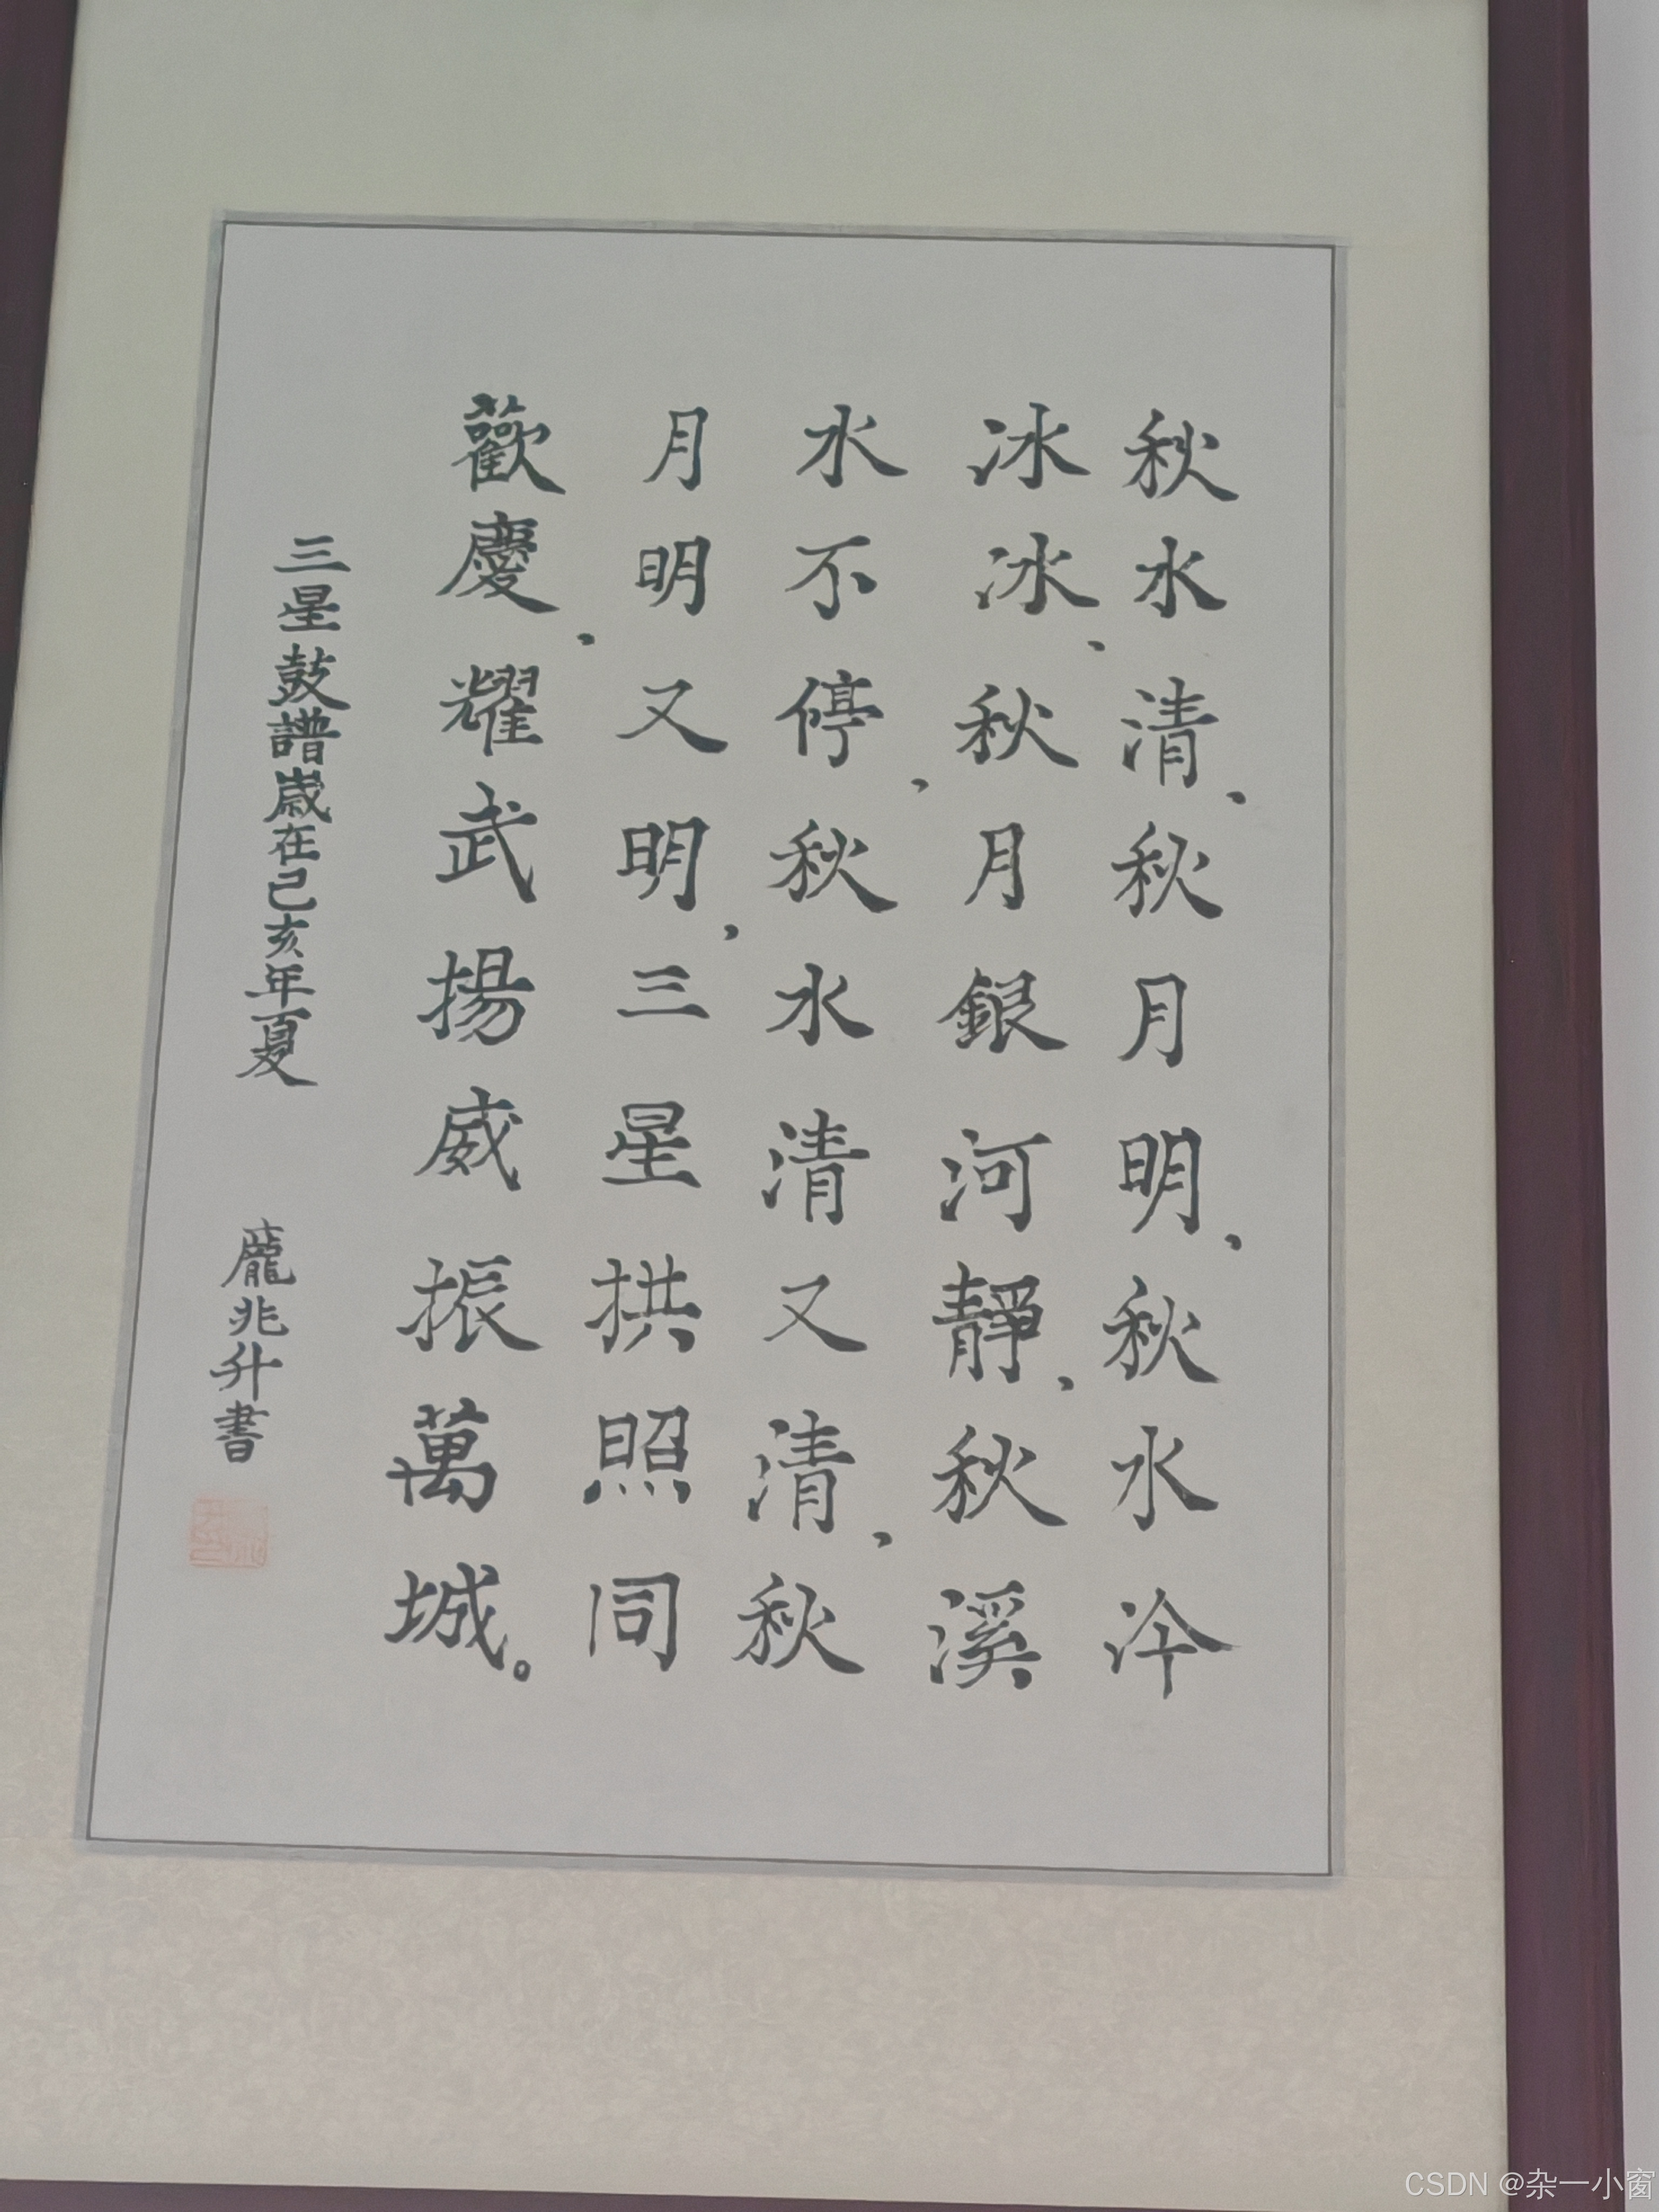 秋水清，秋月明，秋水冷
冰冰，秋月銀河靜，秋溪
水不停，秋水清又清，秋
月明又明，三星拱照同
歡慶，耀武揚威振萬城。
三星鼓譜歲在己亥年夏
龐兆升書
CSDN @杂一小窗